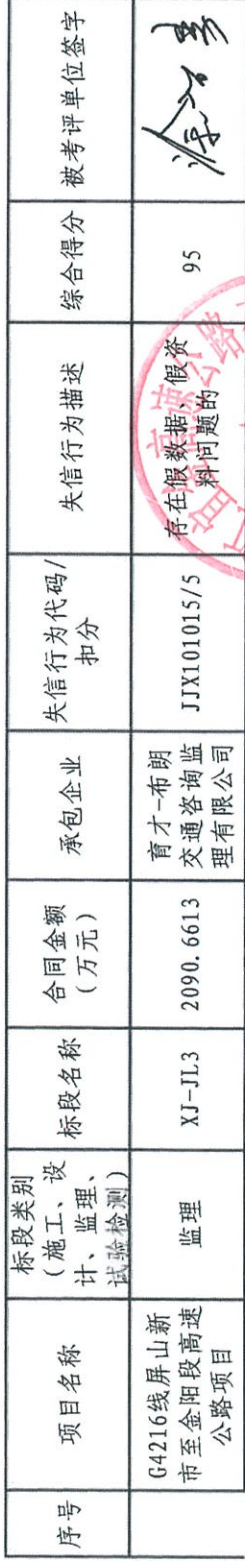 序号
项目名称
标段类别
(施工、设
计、监理、
试验检测)
标段名称
合同金额
(万元)
承包企业
失信行为代码/
扣分
失信行为描述
综合得分
被考评单位签字
G4216线屏山新
市至金阳段高速
公路项目
监理
XJ-JL3
2090.6613
育才-布朗
交通咨询监
理有限公司
JJX101015/5
存在假数据、假资
料问题的
95